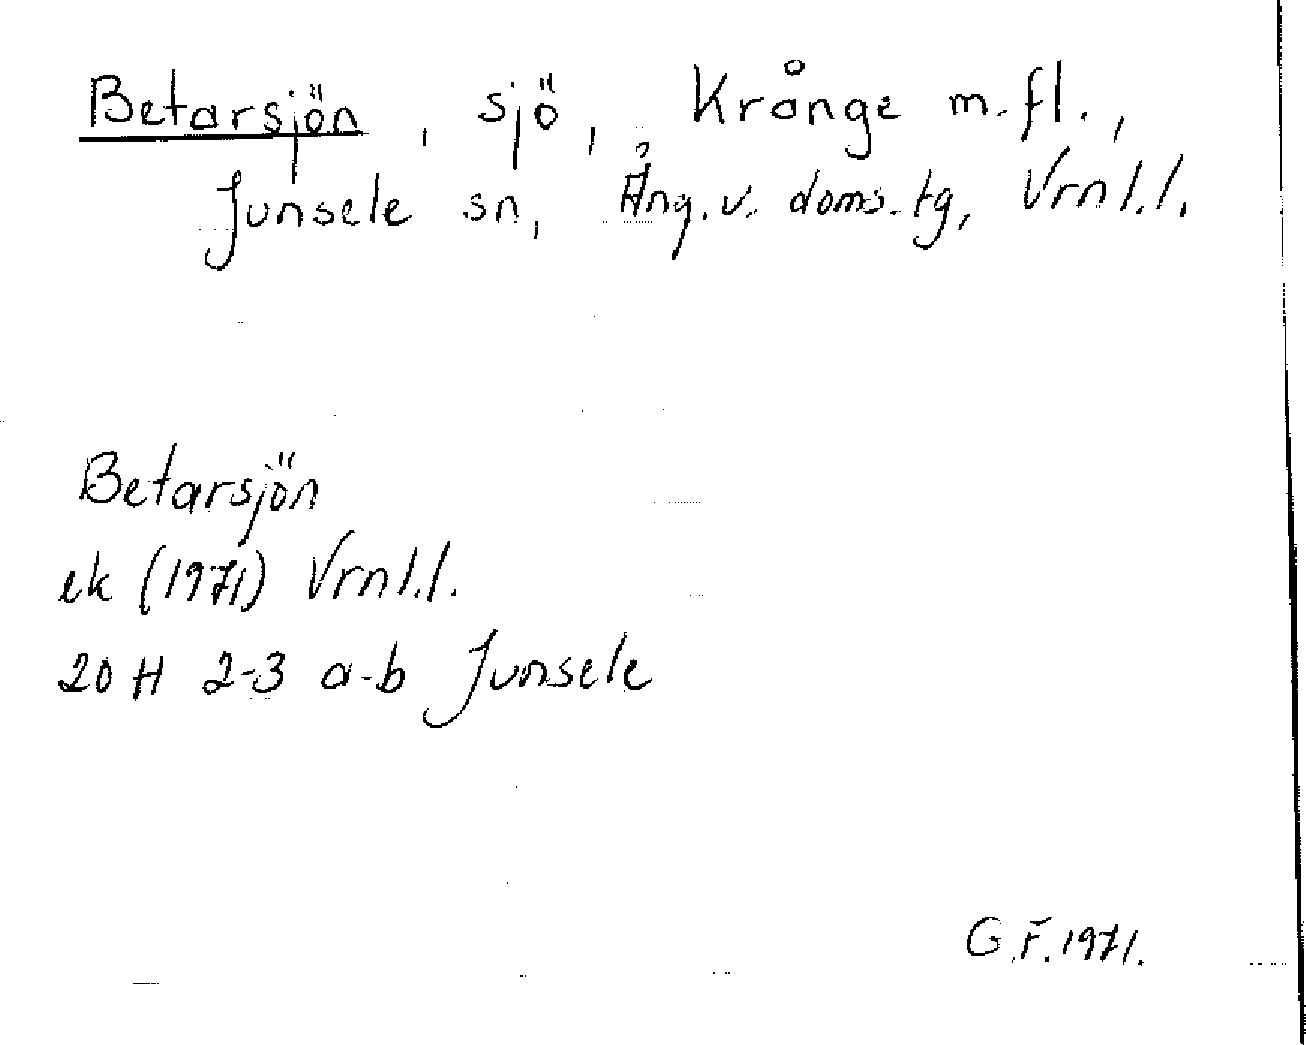 Betarsjön, sjö, Krånge m.fl.,
Junsele sn, Ång.v. doms.tg, Vrnl.l.
Betarsjön
ek (1971) Vrnl.l.
20 H 2-3 a-b Junsele
G.F. 1971.